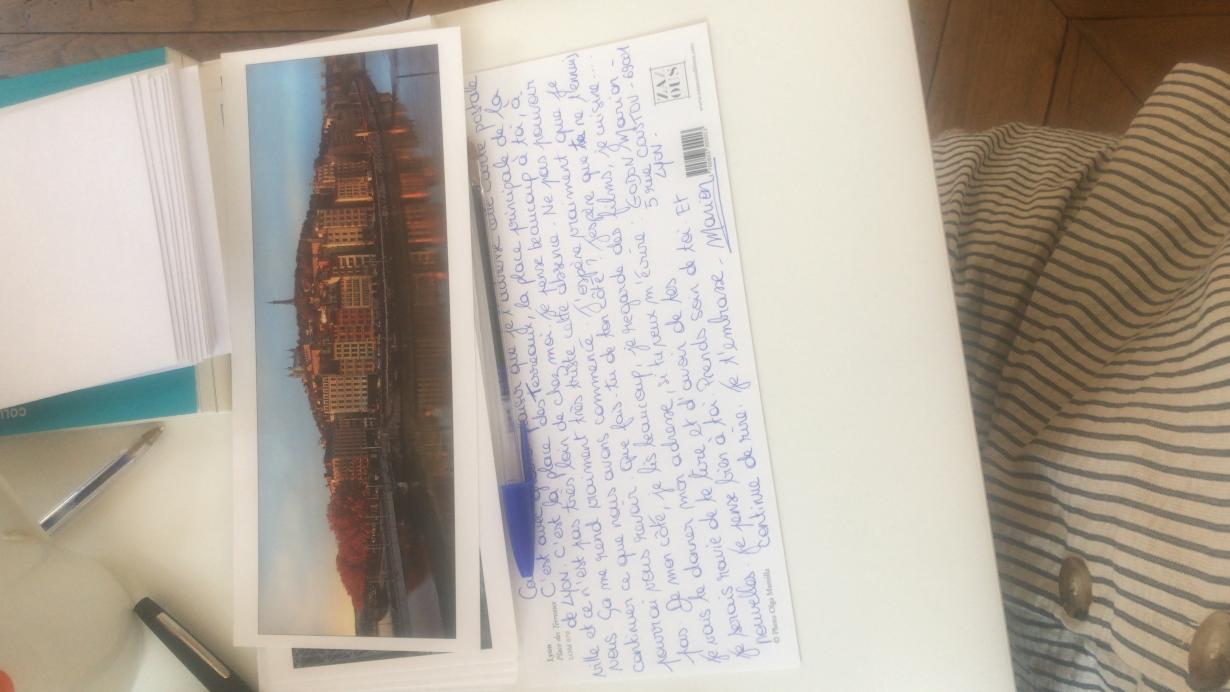 C'est avec plaisir que je t'adresse cette carte postale
de Lyon. C'est la place des Terreaux, la place principale de la
ville et ce n'est pas très loin de chez moi. Je pense beaucoup à toi, à
vous. Ça me rend vraiment très triste cette absence. Ne pas pouvoir
continuer ce que nous avons commencé. J'espère vraiment que je
pourrai vous revoir. Que fais-tu de ton côté ? J'espère que tu ne t'ennuis
pas. De mon côté, je lis beaucoup, je regarde des films, je cuisine....
Je vais te donner mon adresse, si tu veux m'écrire : Marion -
5 rue COUSTOU - 69001
Lyon -
Je serais ravie de te lire et d'avoir de tes
nouvelles. Je pense bien à toi. Prends soin de toi Et
continue de rire. Je t'embrasse - Marion
Lyon
Place des Terreaux
© Photo Olga Mamilla
ZA/
OUS
COLL